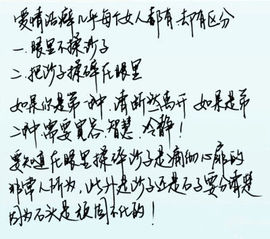 爱情洁癖几乎每个女人都有 却有区分
一. 眼里不揉沙子
二. 把沙子揉碎在眼里
如果你是第一种. 请断然离开 如果是第
二种 需要宽容. 智慧. 冷静!
要知道在眼里揉碎沙子是痛彻心扉的
非常人所为, 此外是沙子还是石子要分清楚
因为石头是顽固不化的!